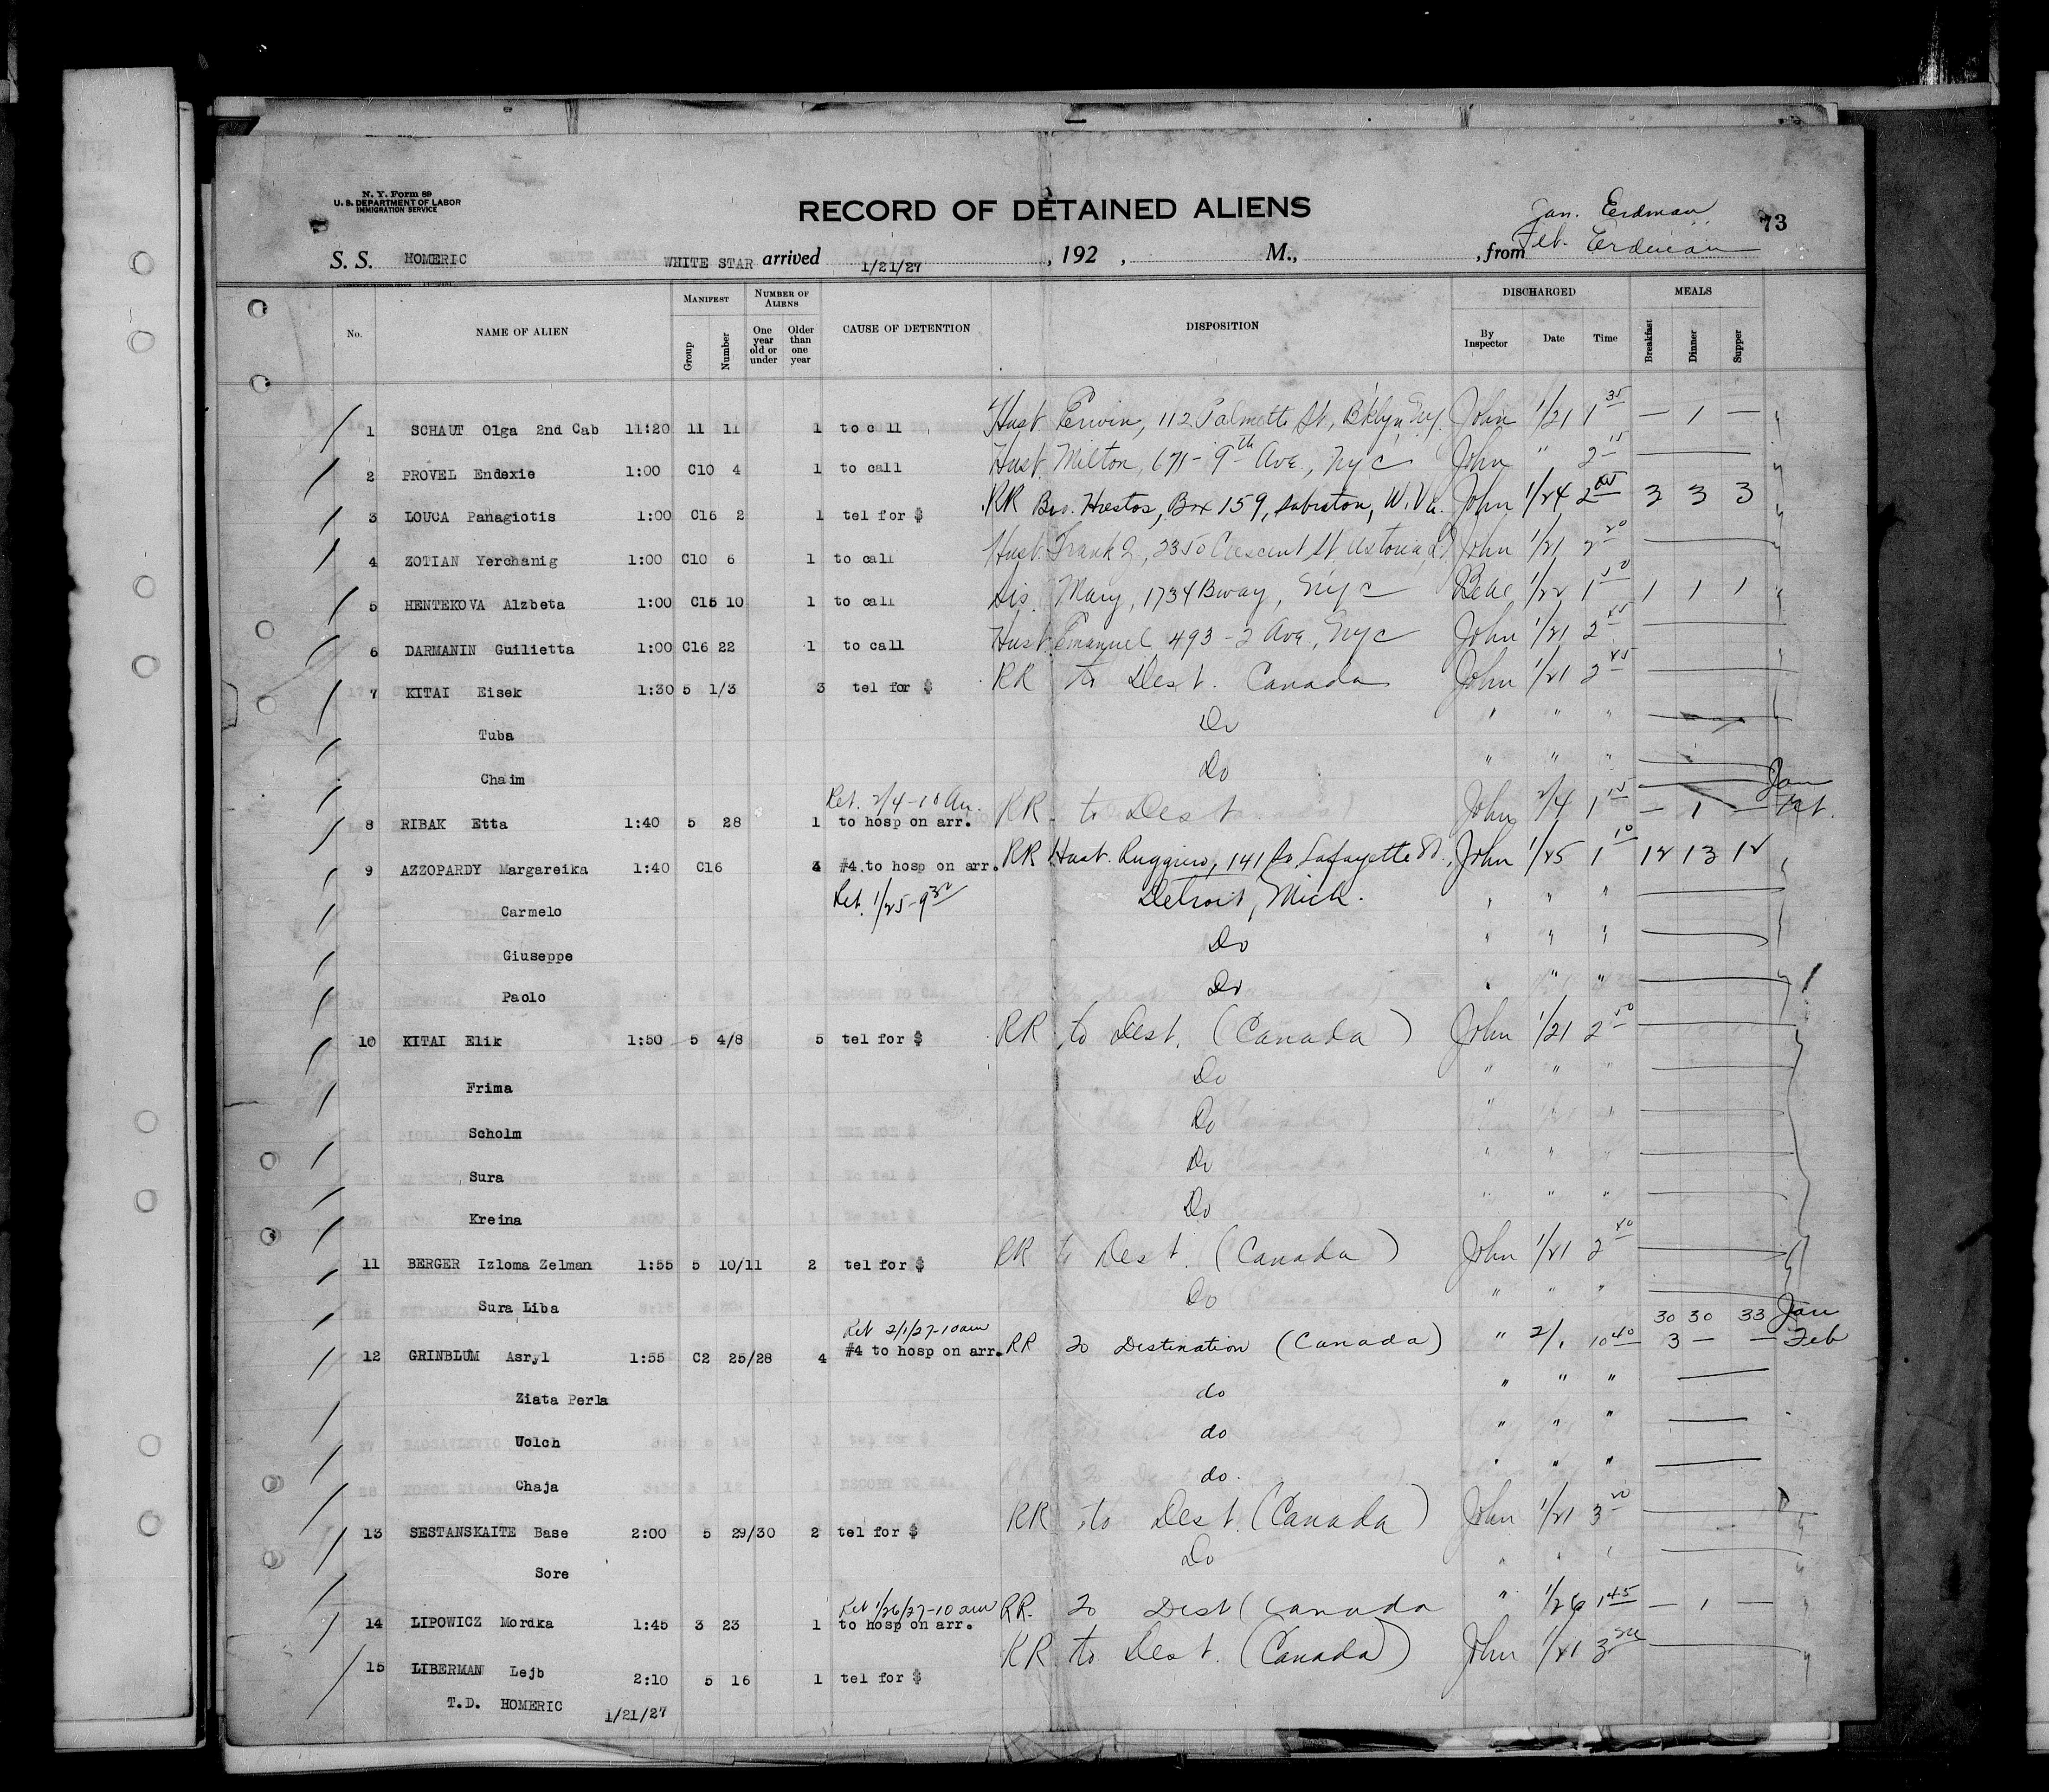 N. Y. Form 89
U. S. DEPARTMENT OF LABOR
IMMIGRATION SERVICE
RECORD OF DETAINED ALIENS
Jan. Erdman
73
S. S. HOMERIC WHITE STAR arrived 1/21/27, 192 , M., from Feb. Erdman
No. NAME OF ALIEN MANIFEST Group Number NUMBER OF ALIENS One year old or under Older than one year CAUSE OF DETENTION DISPOSITION DISCHARGED By Inspector Date Time MEALS Breakfast Dinner Supper
1 SCHAUT Olga 2nd Cab 11:20 11 11 1 to call Husb. Erwin, 112 Palmetto St., Bklyn NY John 1/21 1 35 — 1 —
2 PROVEL Endexie 1:00 C10 4 1 to call Husb. Milton, 671 - 9th Ave., NYC John " 2 15
3 LOUCA Panagiotis 1:00 C15 2 1 tel for $ RR Bro. Hrestos, Box 159, Sabraton, W. Va. John 1/24 2 3 3 3
4 ZOTIAN Yerchanig 1:00 C10 6 1 to call Husb. Frank 2350 Crescent St. Astoria John 1/21 2 20
5 HENTEKOVA Alzbeta 1:00 C15 10 1 to call Sis. Mary, 1734 Bway, NYC 1/22 1 50 1 1 1
6 DARMANIN Guilietta 1:00 C16 22 1 to call Husb. Emanuel 493 - 2 Ave., NYC John 1/21 2 45
7 KITAI Eisek 1:30 5 1/3 3 tel for $ RR to Dest. Canada John 1/21 2 45
Tuba Do " " "
Chaim Do " " "
Ret. 2/4-10 Am. Jan
8 RIBAK Etta 1:40 5 28 1 to hosp on arr. RR to Dest John 2/4 1 15 — 1 —
9 AZZOPARDY Margareika 1:40 C16 4 #4 to hosp on arr. RR Husb. Ruggiero, 141 So Lafayette St., John 1/25 1 10 12 13 12
Carmelo Ret. 1/25-9 30 Detroit, Mich. " " "
Giuseppe Do " " "
Paolo Do " " "
10 KITAI Elik 1:50 5 4/8 5 tel for $ RR to Dest. (Canada) John 1/21 2 50
Frima Do " " "
Scholm Do " " "
Sura Do " " "
Kreina Do " " "
11 BERGER Izloma Zelman 1:55 5 10/11 2 tel for $ RR to Dest. (Canada) John 1/21 2 40
Sura Liba Do " " "
Ret 2/1/27-10am 30 30 33 Jan
12 GRINBLUM Asryl 1:55 C2 25/28 4 #4 to hosp on arr. RR to Destination (Canada) " 2/1 10 40 3 — — Feb
Ziata Perla do " " "
Uolch do " " "
Chaja do. " " "
13 SESTANSKAITE Base 2:00 5 29/30 2 tel for $ RR to Dest. (Canada) John 1/21 3 20
Sore Do " " "
Ret 1/26/27-10am
14 LIPOWICZ Mordka 1:45 3 23 1 to hosp on arr. RR. to Dest (Canada " 1/26 1 45 — 1 —
15 LIBERMAN Lejb 2:10 5 16 1 tel for $ RR to Dest. (Canada) John 1/21 3
T.D. HOMERIC 1/21/27